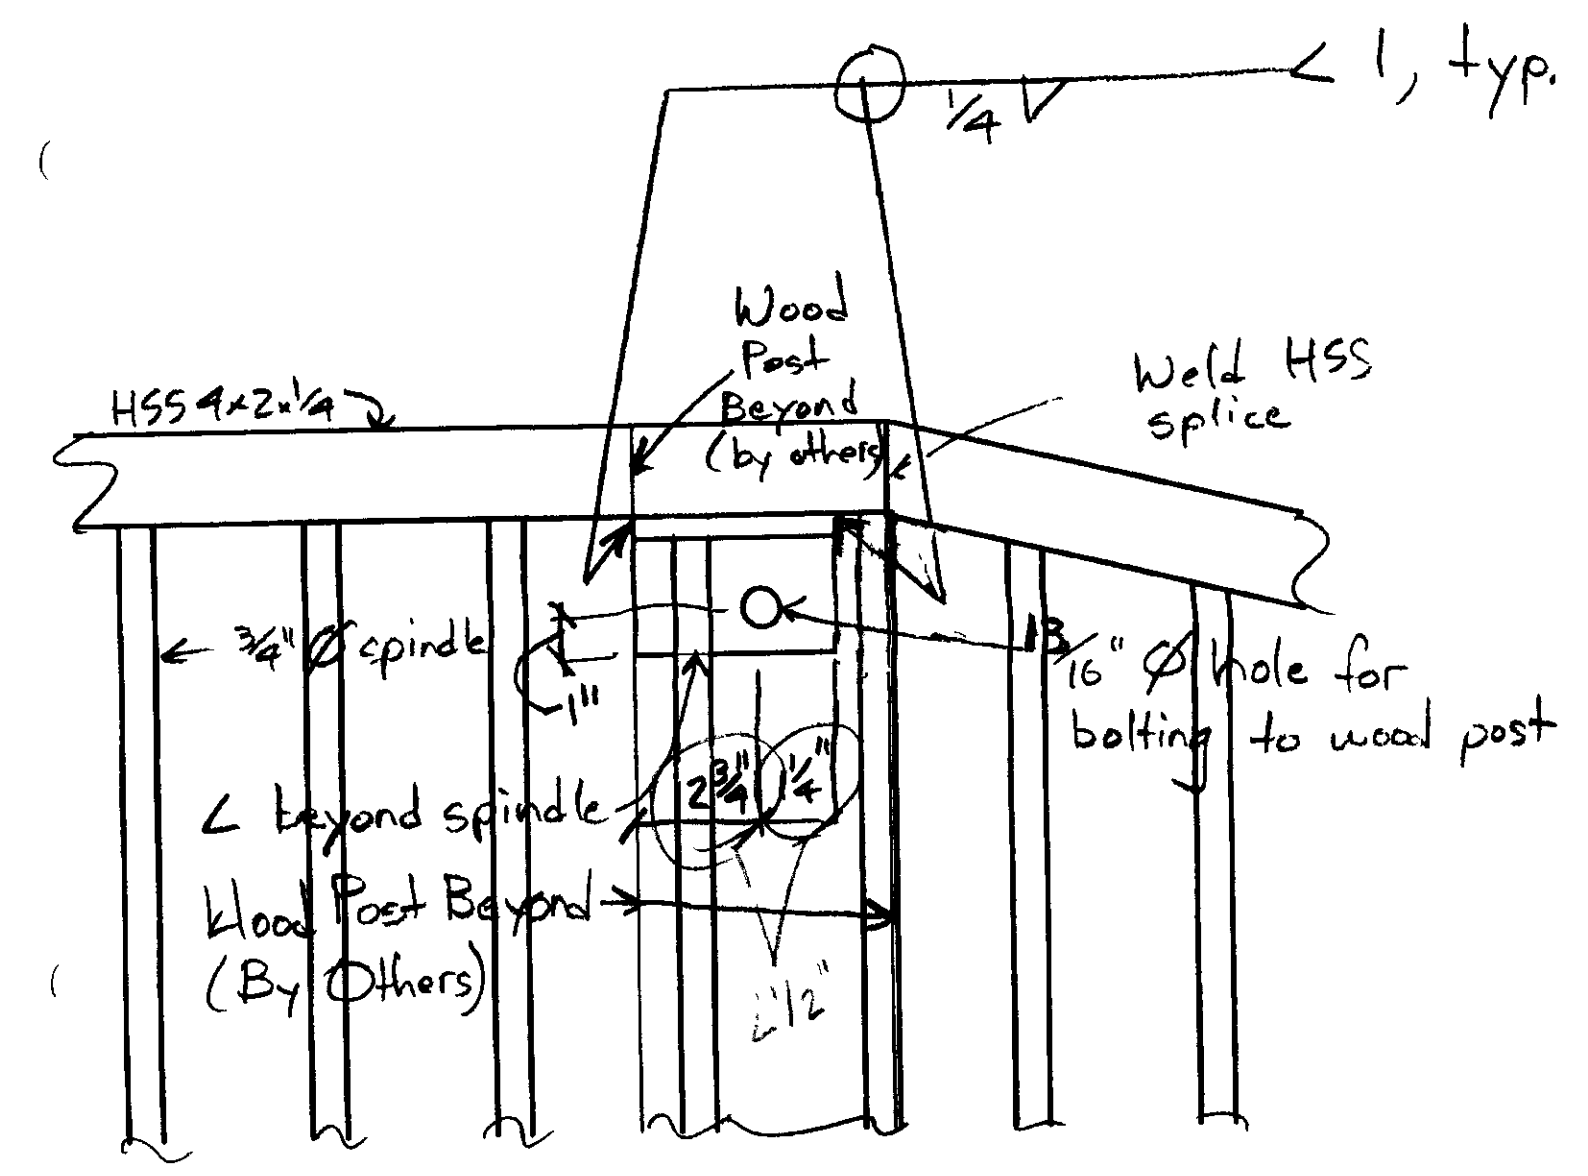 1, typ.
1/4
Wood
Post
Beyond
(by others)
Weld HSS
splice
HSS 4x2x1/4
3/4" Ø spindle
1"
13/16" Ø hole for
bolting to wood post
2 3/4" 1/4"
∠ beyond spindle
Wood Post Beyond
(By Others)